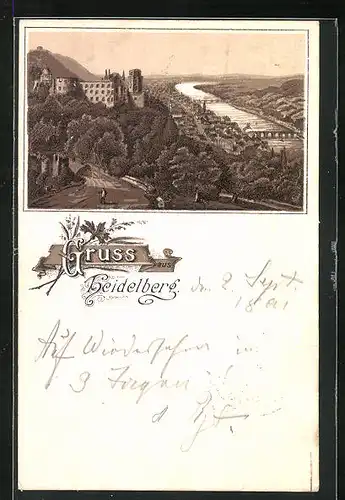 Gruss
aus
Heidelberg.
den 2 Sept.
1891
Auf Wiedersehen in
3 Tagen